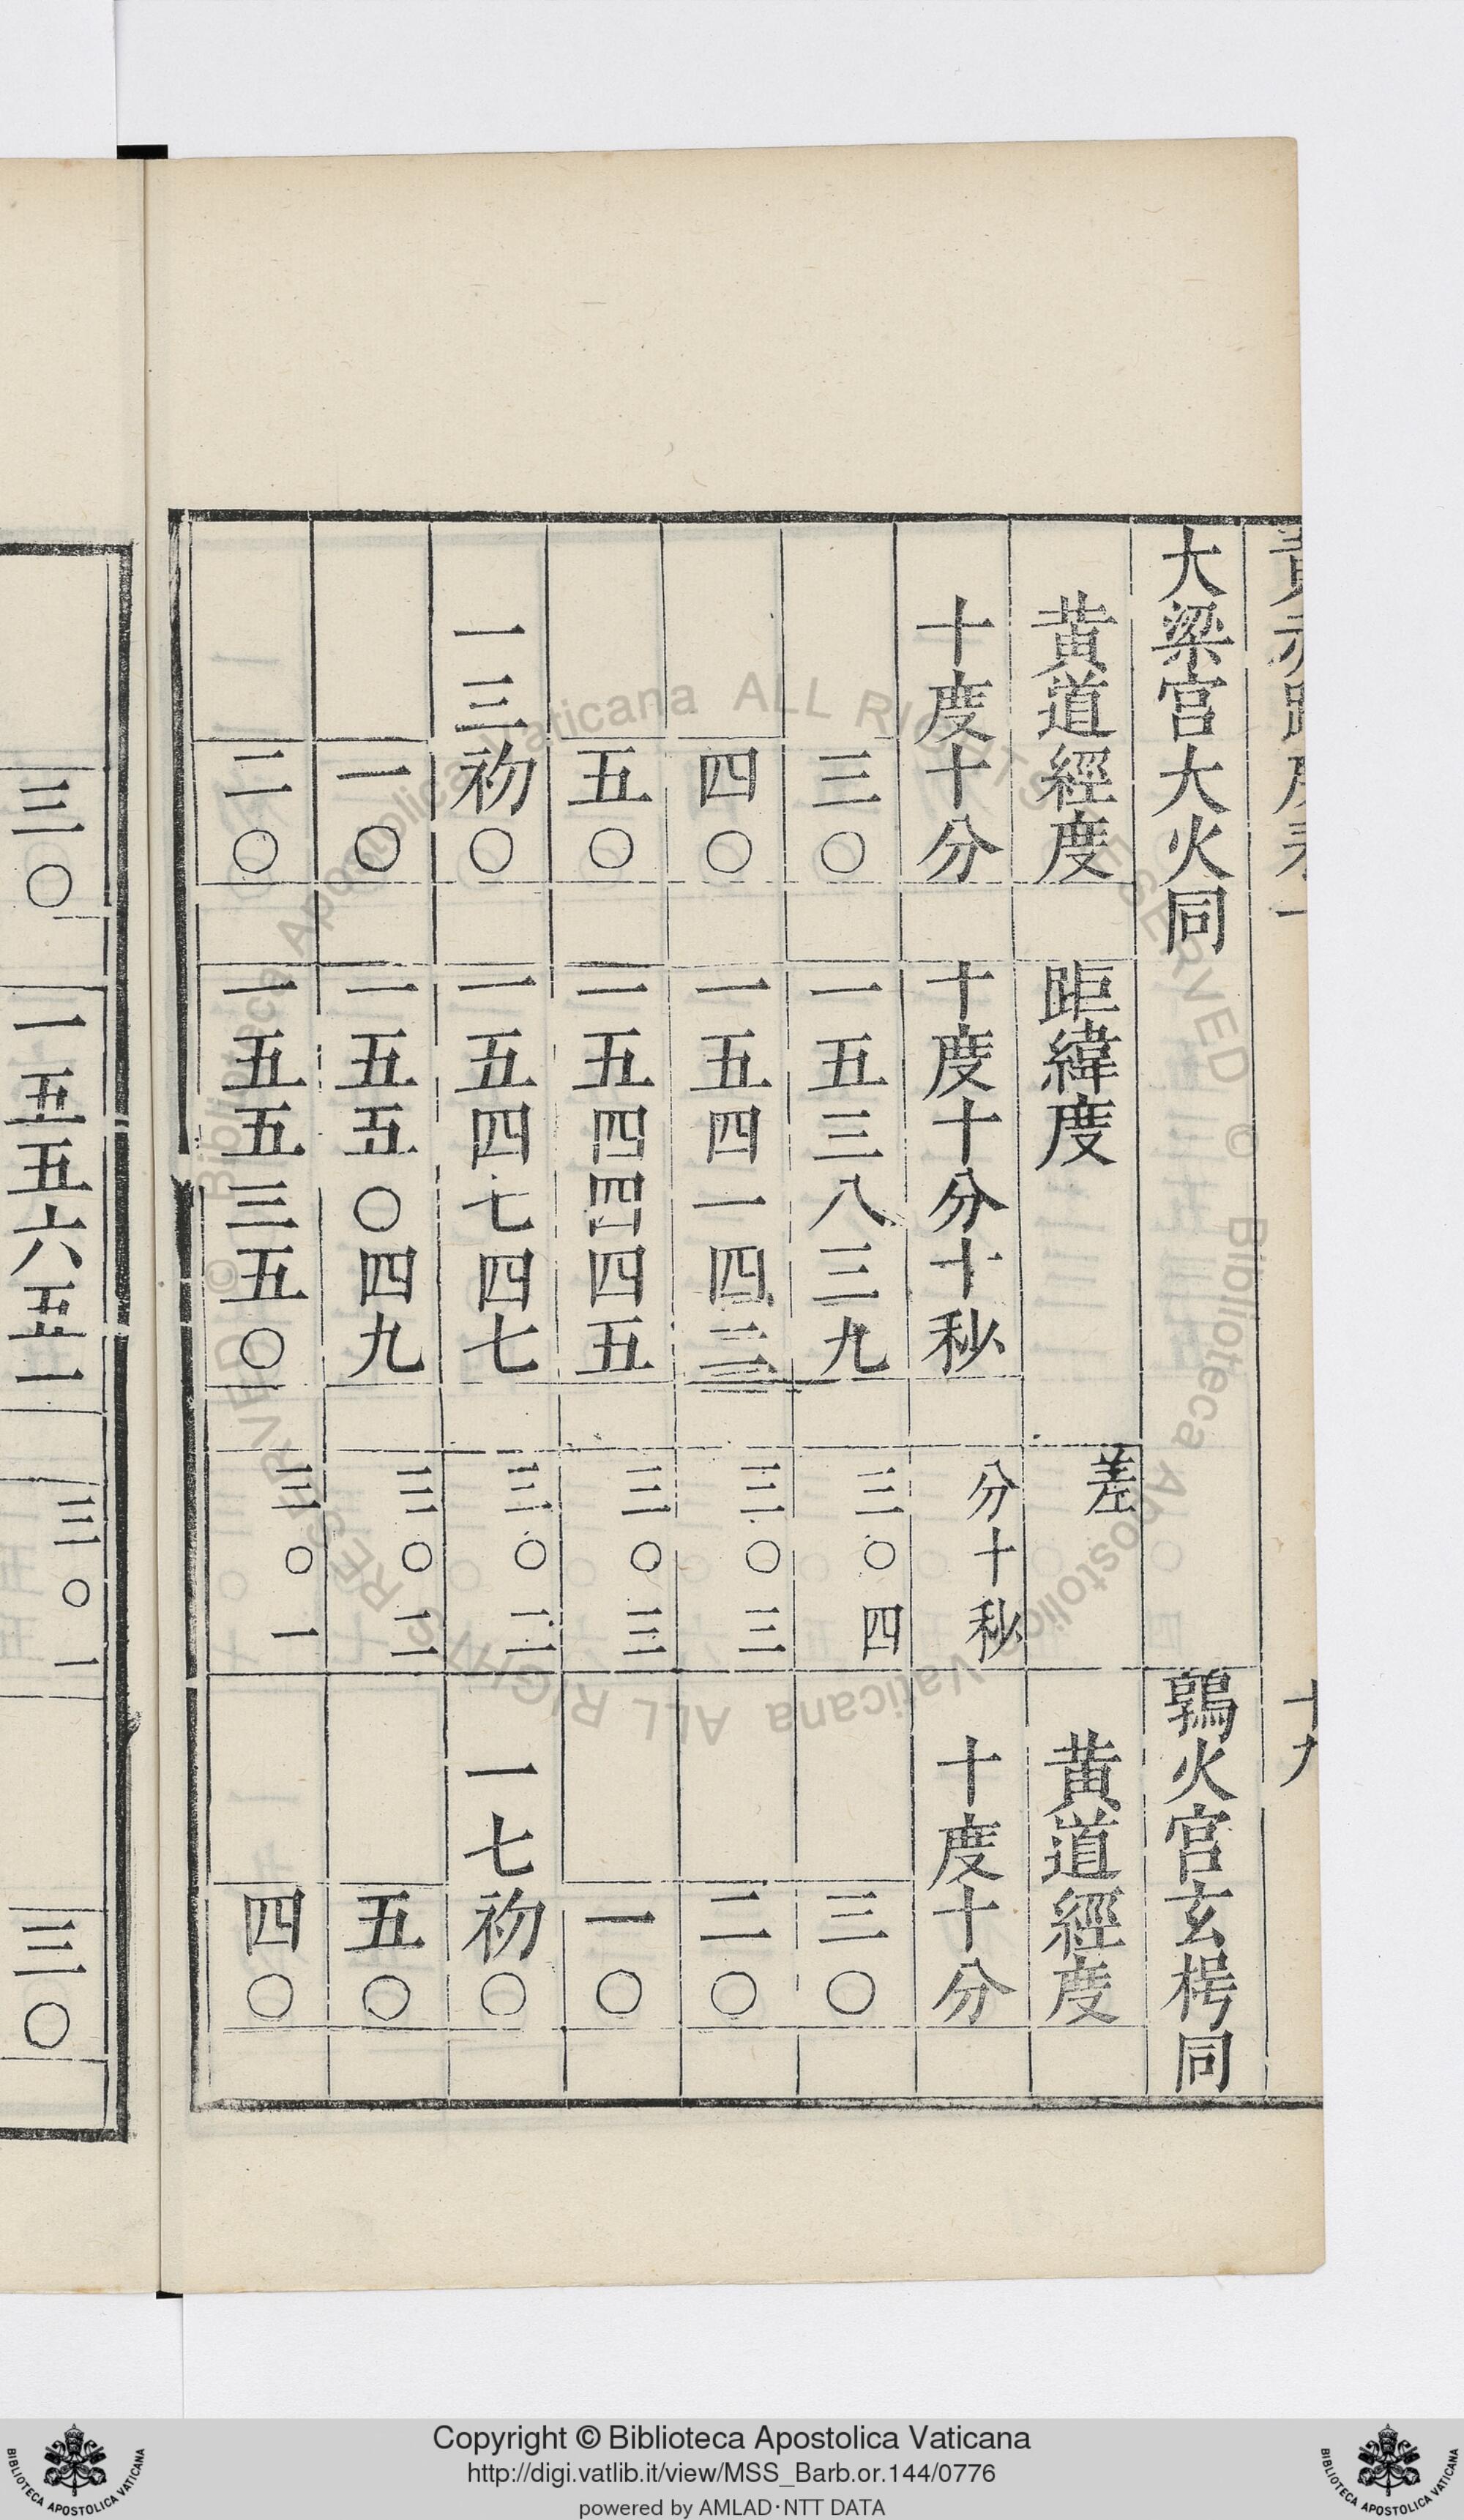 黃赤距度表一 十九
大梁宮大火同 鶉火宮玄枵同
黃道經度 距緯度 差 黃道經度
十度十分 十度十分十秒 分十秒 十度十分
三〇 一五三八三九 三〇四 三〇
四〇 一五四一四三 三〇三 二〇
五〇 一五四四四五 三〇三 一〇
一三初〇 一五四七四七 三〇二 一七初〇
一〇 一五五〇四九 三〇二 五〇
二〇 一五五三五〇 三〇一 四〇
三〇 一五五六五一 三〇一 三〇
Copyright © Biblioteca Apostolica Vaticana
http://digi.vatlib.it/view/MSS_Barb.or.144/0776
powered by AMLAD·NTT DATA